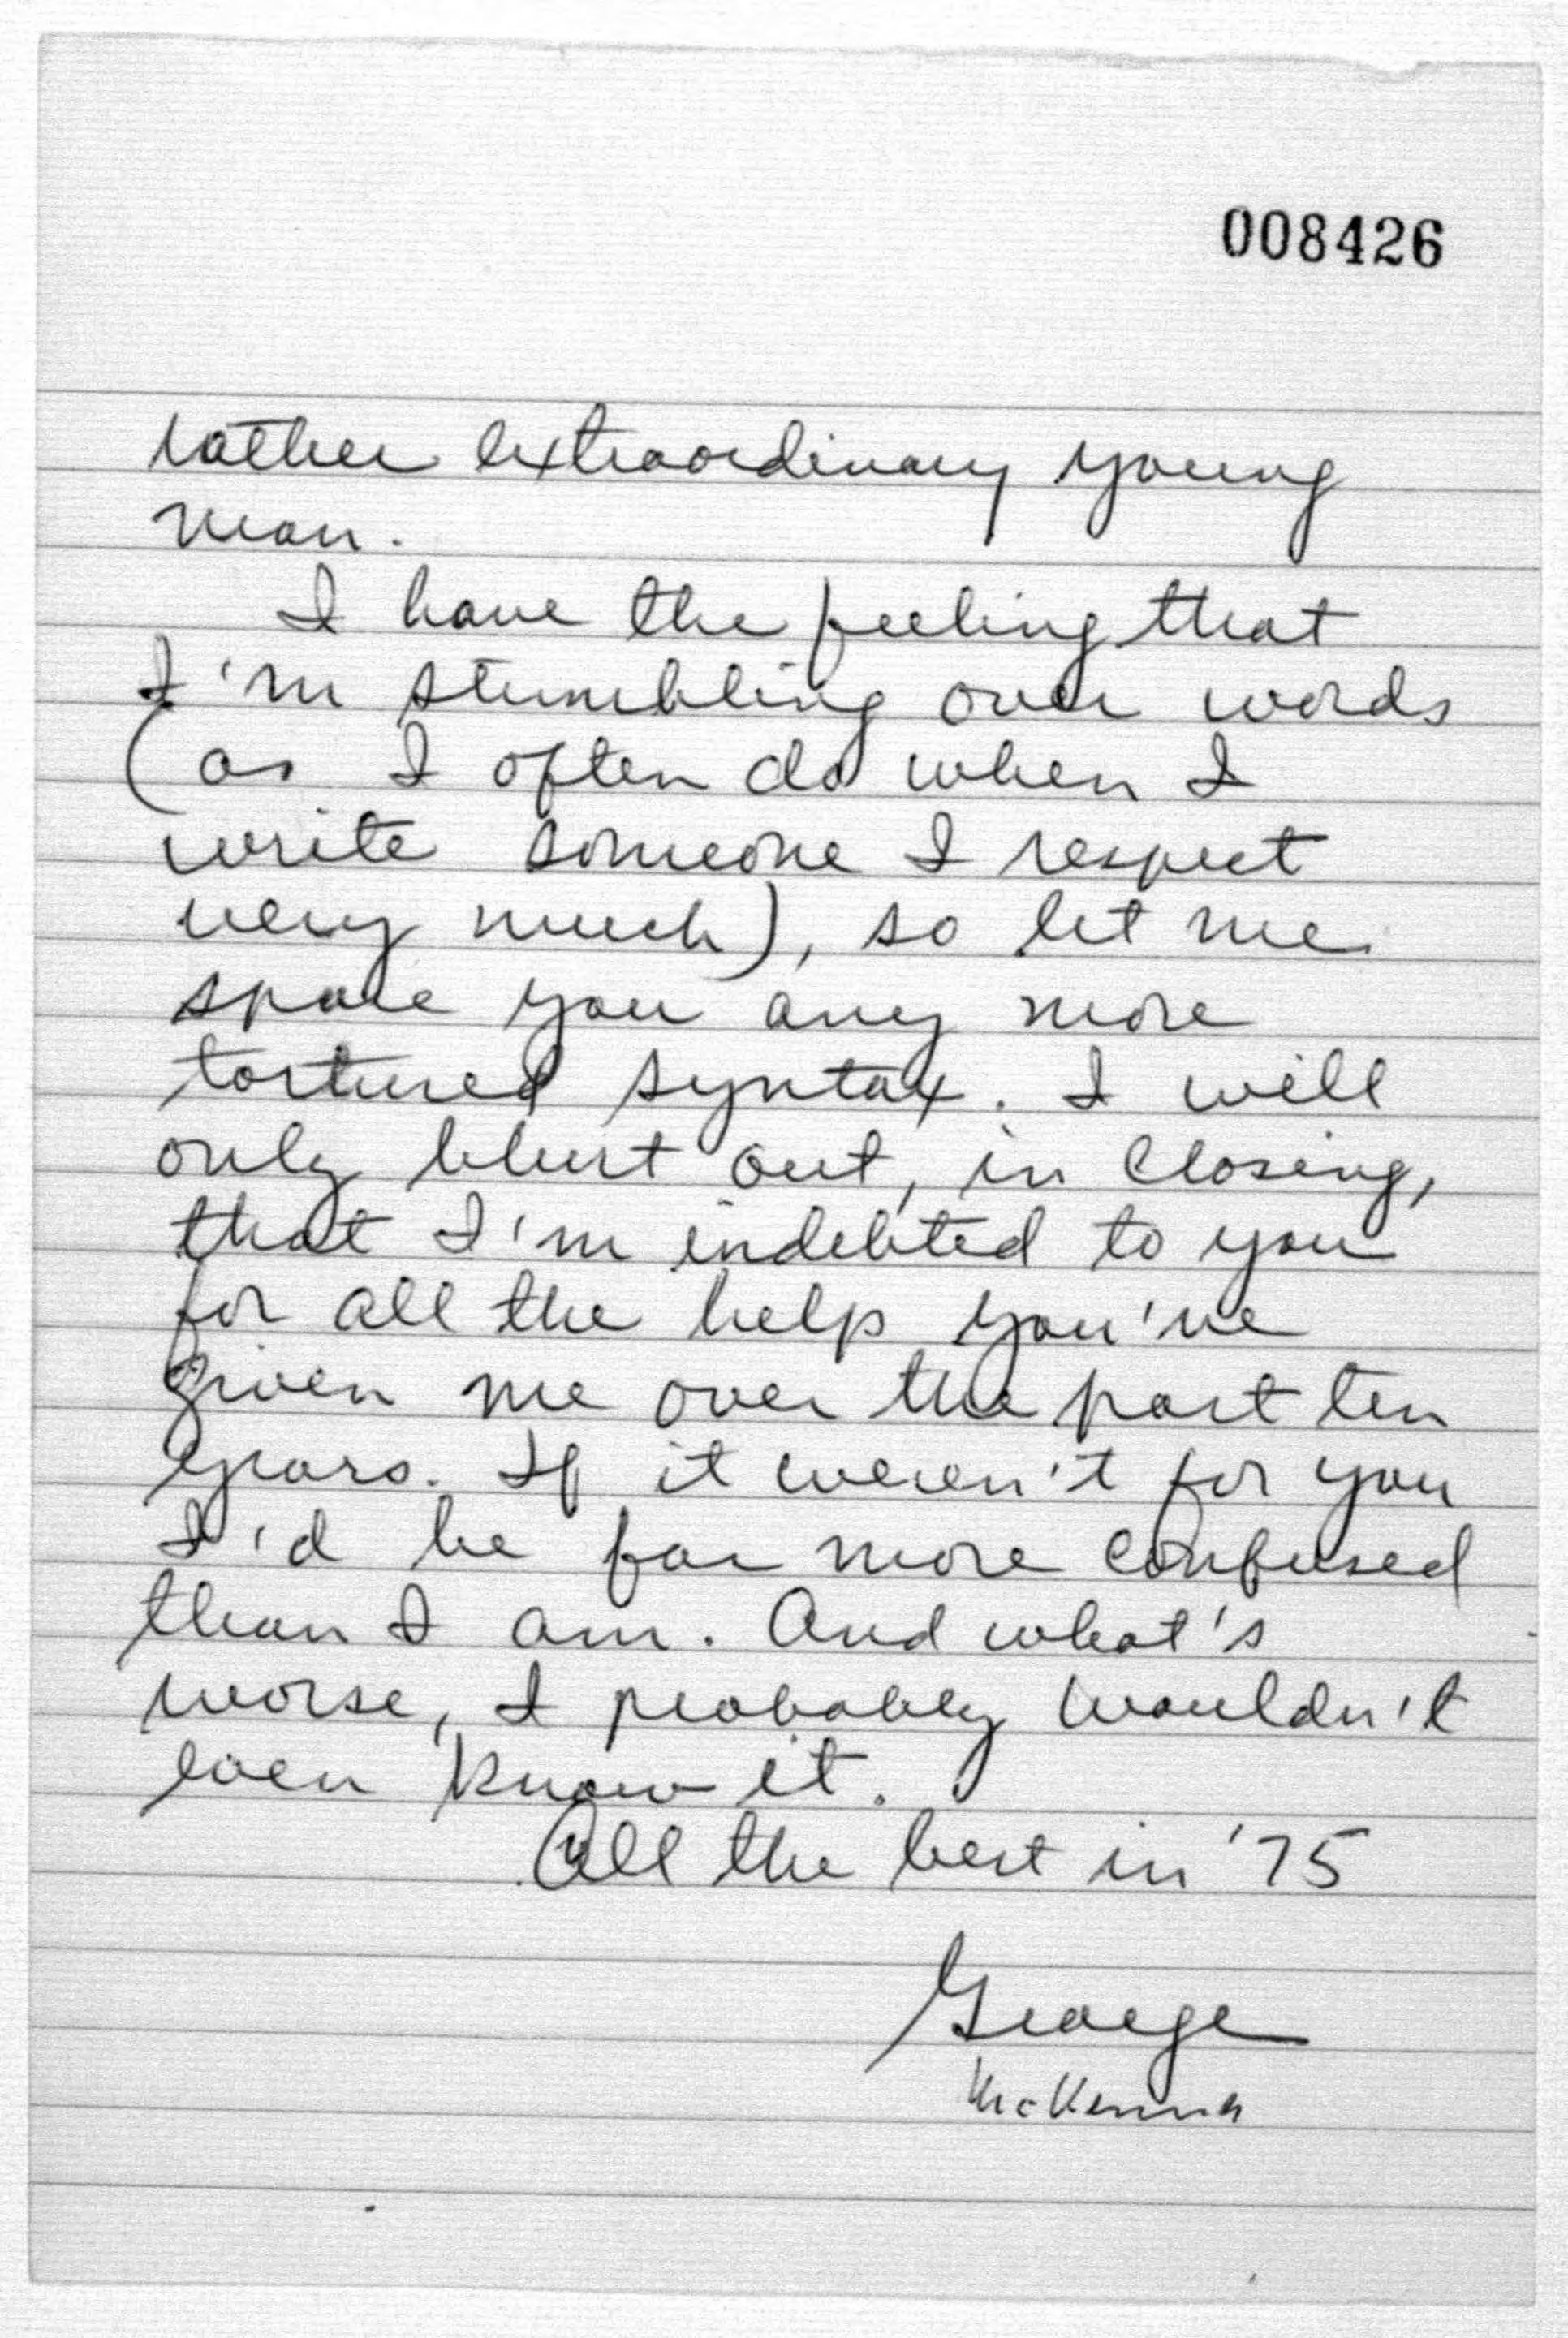 008426
rather extraordinary young
man.
I have the feeling that
I'm stumbling over words
(as I often do when I
write someone I respect
very much), so let me
spare you any more
tortured syntax. I will
only blurt out, in closing,
that I'm indebted to you
for all the help you've
given me over the past ten
years. If it weren't for you
I'd be far more confused
than I am. And what's
worse, I probably wouldn't
even know it.
All the best in '75
George
McKenna